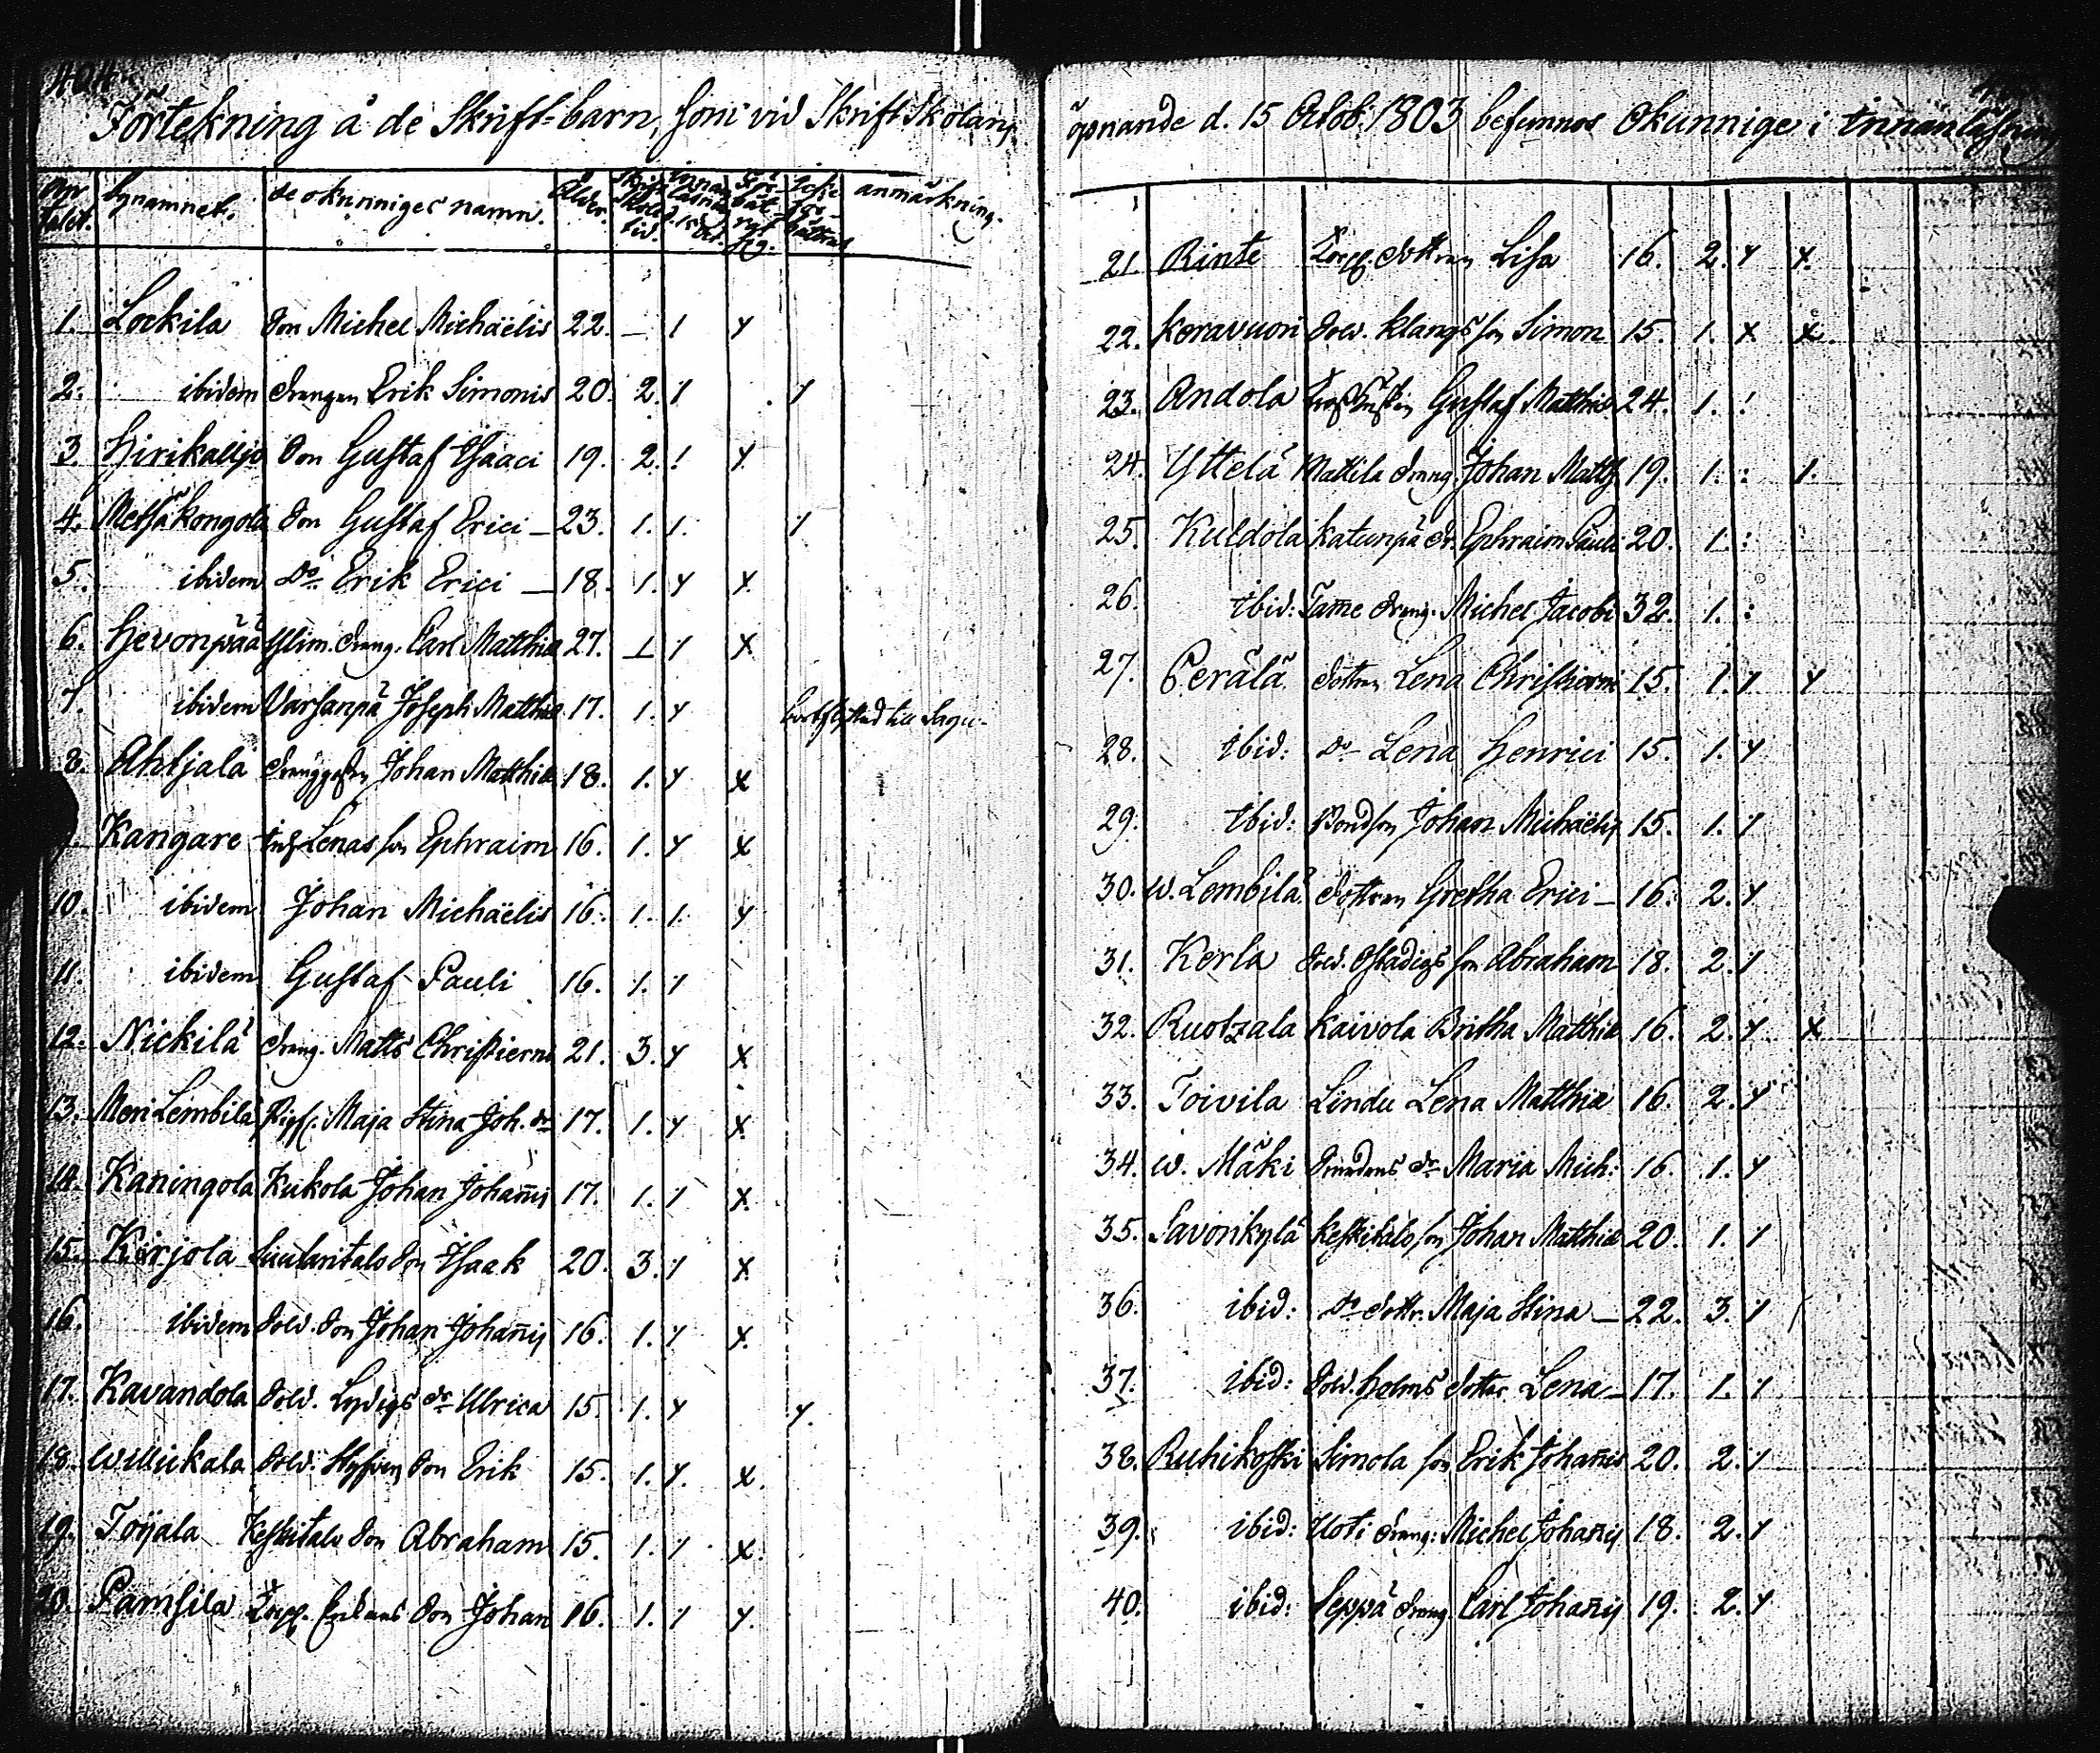 404
Förtekning å de Skrift-barn, som vid Skrift Skolans
N:r talet. bynamnet. de okunniges namn. Ålder. Skrift Skole tid. innan läsning d. 15 Oct. För bät rat sig. icke för bättrat anmärkning.
1. Lockila Son Michel Michaëlis 22. – 1 x
2. ibidem drengen Erik Simonis 20. 2. 1 1
3. Hirikalljo Son Gustaf Isaaci 19. 2. 1 x
4. Metsäkongola Son Gustaf Erici – 23. 1. 1. 1
5. ibidem D:o Erik Erici – 18. 1. x x
6. Hevonpää Ylim. dreng. Carl Matthiæ 27. 1 1 x
7. ibidem Varsanpä Joseph Matthiæ 17. 1. x bortflyttad till Sagu.
8. Ahtjala Johan Matthiæ 18. 1. x x
9. Kangare Inh. Lenas son Ephraim 16. 1. x x
10. ibidem Johan Michaëlis 16. 1. 1. x
11. ibidem Gustaf Pauli 16. 1. 1
12. Nickilä dreng. Matts Christierni 21. 3. x x
13. Meri Lembilä Pig. Maja Stina Joh. dr 17. 1. x x
14. Kaningola Kukola Johan Johañis 17. 1. 1 x
15. Karjola Isaak 20. 3. 1 x
16. ibidem Sold. Son Johan Johañis 16. 1. x x
17. Kavandola Sold. dr Ulrica 15. 1. x x.
18. Willickala Sold. Son Erik 15. 1. x. x.
19. Toijala Keskitalo Son Abraham 15. 1. 1 x.
20. Pamsila Torp. Son Johan 16. 1. 1 x.
öpnande d. 15 Octob. 1803 befunnos Okunnige i innanläsning
21. Rinte Torp. dottren Lisa 16. 2. x x.
22. Keravuori Sold. Klangs son Simon 15. 1. x x.
23. Andola Gustaf Matthiæ 24. 1. !
24. Yttelä Mattila dreng. Johan Matth 19. 1. : 1.
25. Kuldola Katunpä dr. Ephraim Pauli 20. 1. :
26. ibid: Tam̄e dreng. Michel Jacobi 32. 1. :
27. Perälä dottren Lena Christierni 15. 1. x x
28. ibid: D:o Lena Henrici 15. 1. x
29. ibid: Bondson Johan Michaëlis 15. 1. 1
30. W. Lembilä dottren Gretha Erici – 16. 2. x
31. Kerla Sold. Ostadigs son Abraham 18. 2. 1
32. Ruotzala Kaivola Britha Matthiæ 16. 2. x x
33. Toivila Lindu Lena Matthiæ 16. 2. x
34. W. Mäki dr Maria Mich: 16. 1. x
35. Savonkylä Keskitalo son Johan Matthiæ 20. 1. 1
36. ibid: D:o dottr. Maja Stina – 22. 3. 1
37. ibid: Sold. Holms dotter Lena – 17. 1. 1
38. Ruhikoski Simola son Erik Johañis 20. 2. 1
39. ibid: Uoti dreng: Michel Johañis 18. 2. x
40. ibid: Seppä dreng. Carl Johañis 19. 2. x